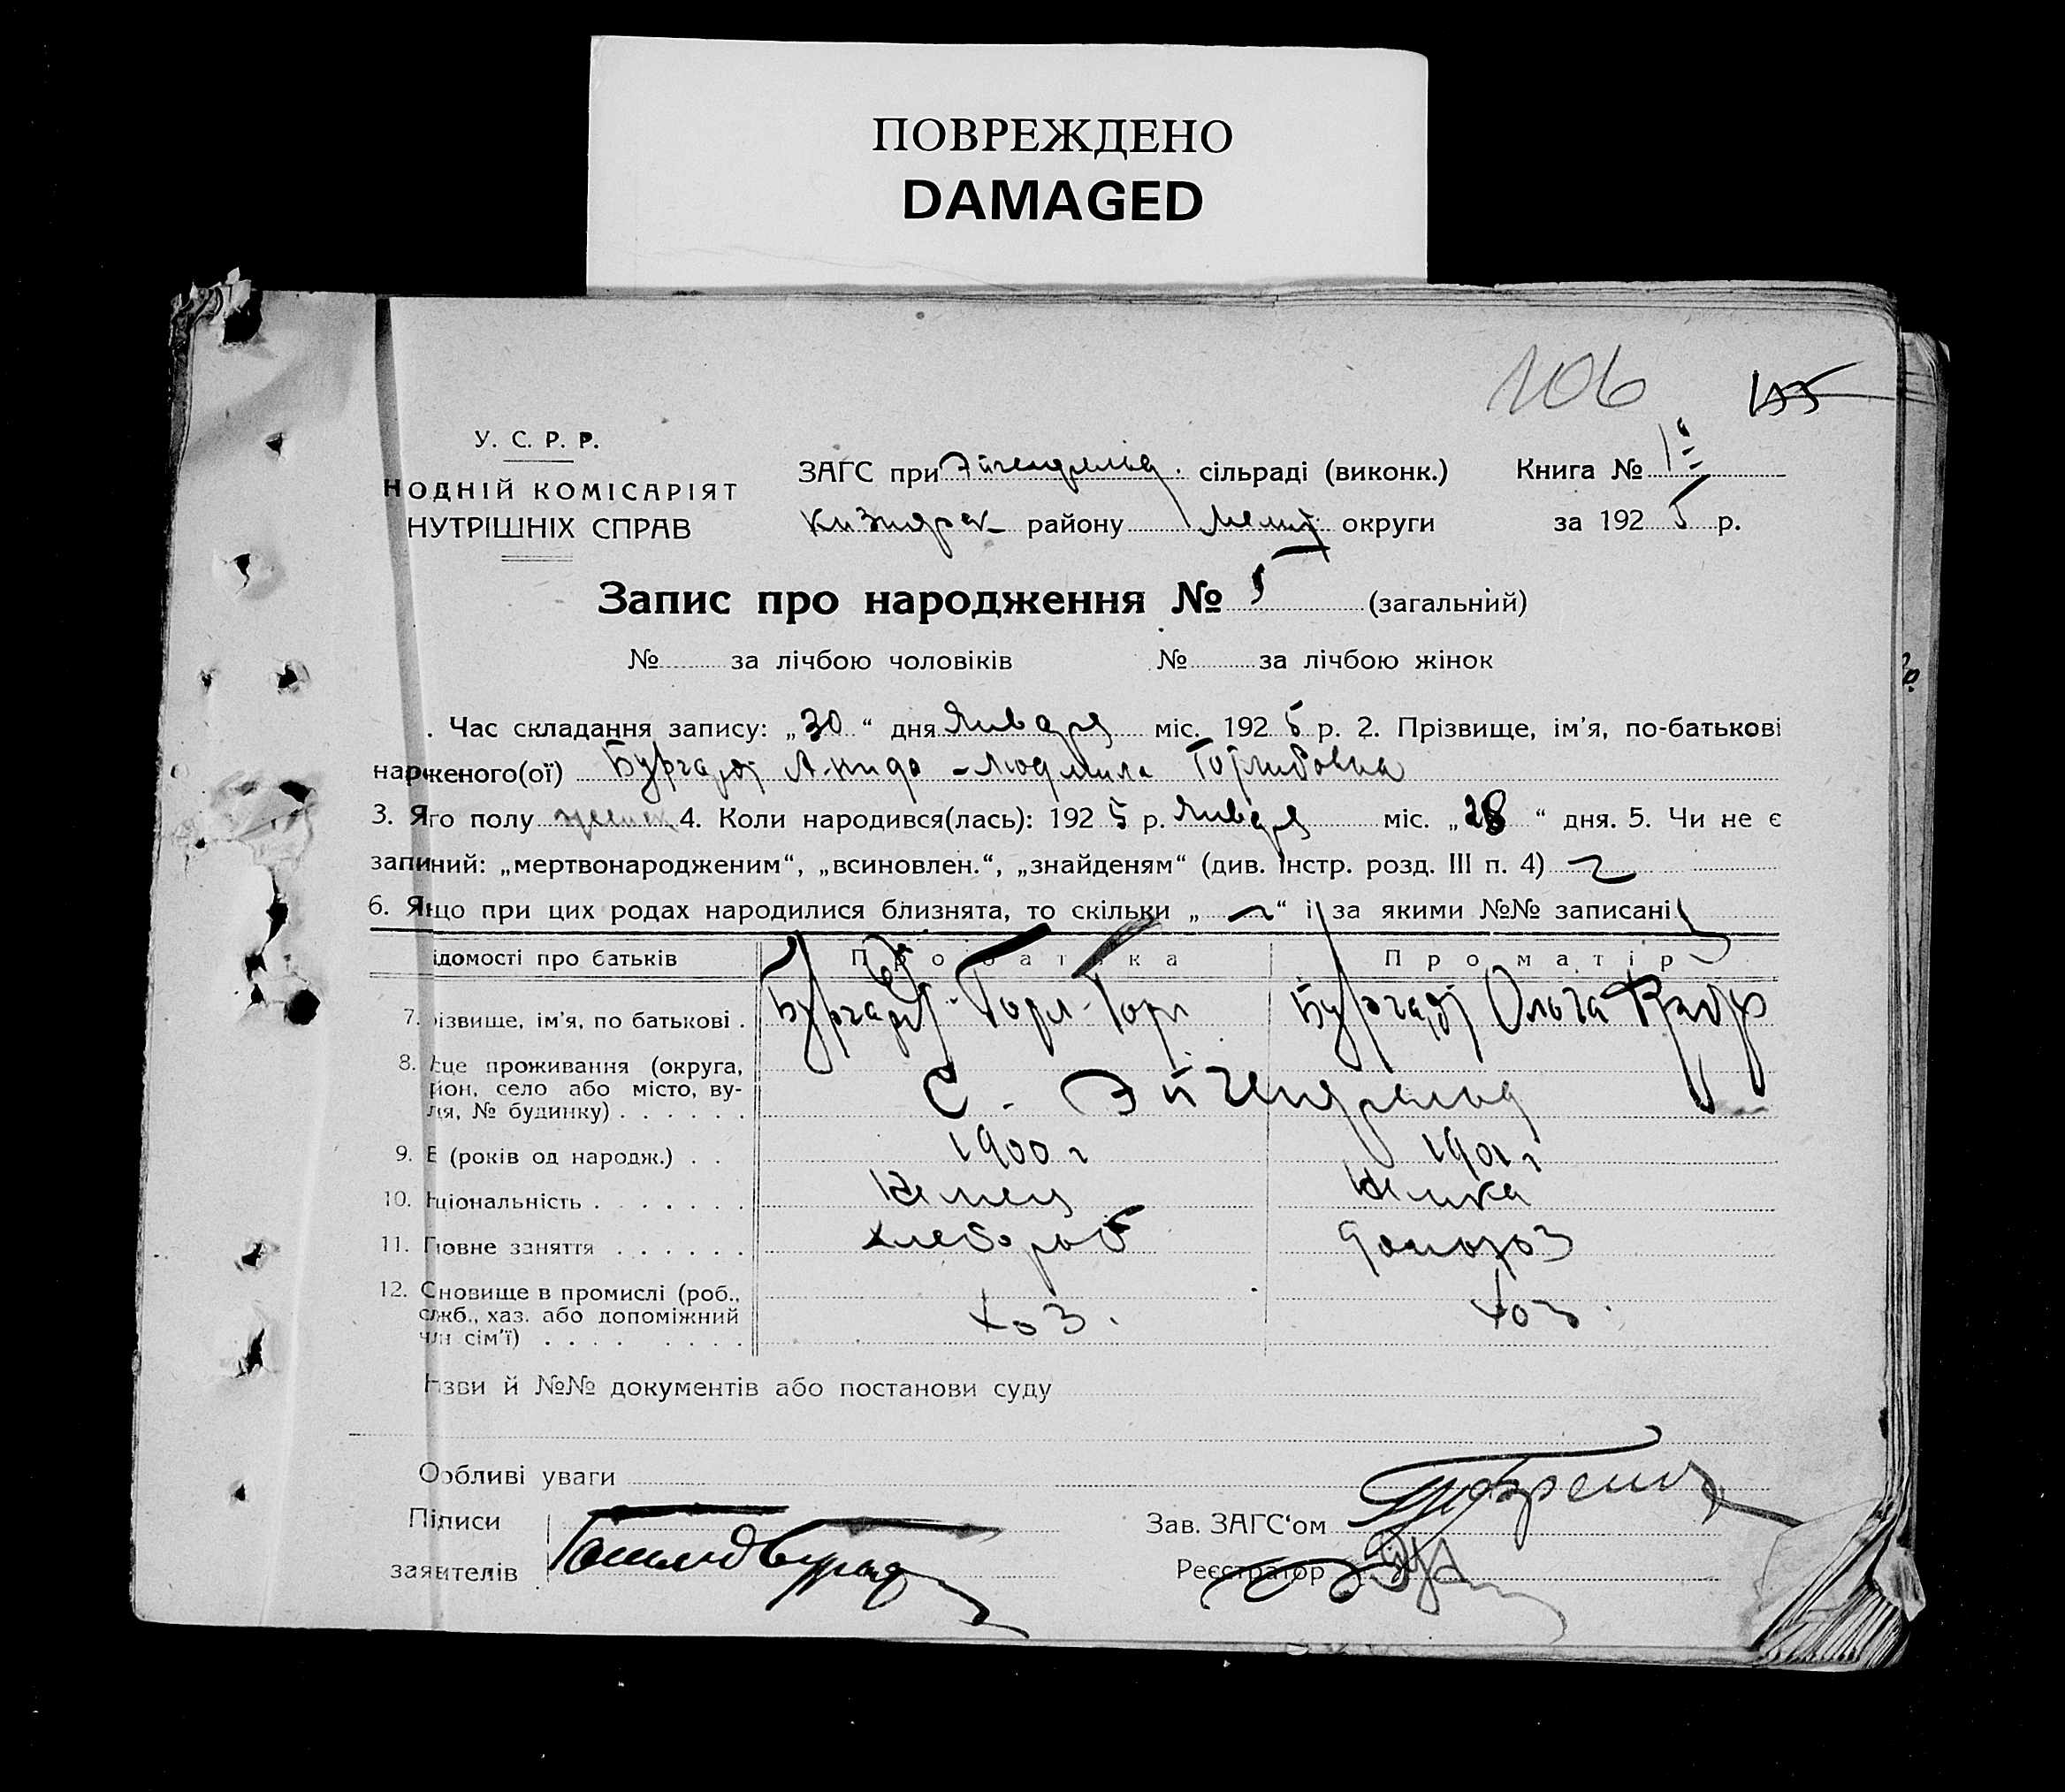 ПОВРЕЖДЕНО
DAMAGED
106 155
У. С. Р. Р.
НОДНІЙ КОМІСАРІЯТ
НУТРІШНІХ СПРАВ
ЗАГС при Эйгенфельд. сільраді (виконк.) Книга № 1
району Мелит. округи за 1925 р.
Запис про народження № 5 (загальний)
№ за лічбою чоловіків № за лічбою жінок
. Час складання запису: „30“ дня Января міс. 1925 р. 2. Прізвище, ім'я, по-батькові
нарженого(ої) Бургардт -Людмила Готлибовна
3. Яго полу женск 4. Коли народився(лась): 1925 р. Января міс. „28“ дня. 5. Чи не є
запиний: „мертвонародженим“, „всиновлен.“, „знайденям“ (див. Інстр. розд. III п. 4)
6. Якщо при цих родах народилися близнята, то скільки „ “ і за якими №№ записані
ідомості про батьків Про батька Про матір
7. різвище, ім'я, по батькові . Бургардт Бургардт Ольга
8. сце проживання (округа,
йон, село або місто, ву-
ля, № будинку) . . . . . . С. Эйгенфельд
9. В (років од народж.) . . 1900 г 1901 г
10. ціональність . . . . . . . Немец Немка
11. Гловне заняття . . . . . . Хлебороб домохоз
12. Сновище в промислі (роб.,
служб., хаз. або допоміжний
чл сім'ї) . . . . . . . . Хоз. Хоз.
Назви й №№ документів або постанови суду
Особливі уваги
Підписи
заявителів
Зав. ЗАГС‘ом
Реєстратор